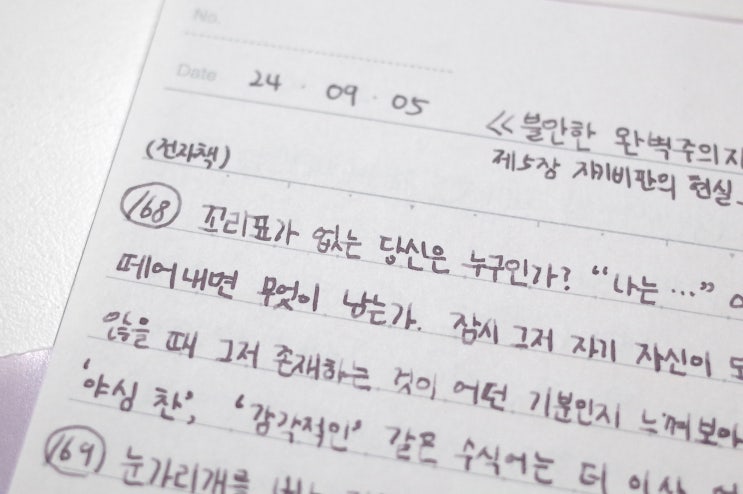 No.
Date 24 · 09 · 05
<< 불안한 완벽주의자
(전자책) 제5장 자기비판의 현실
168 꼬리표가 없는 당신은 누구인가? "나는 ..."
떼어내면 무엇이 남는가. 잠시 그저 자기 자신이
않을 때 그저 존재하는 것이 어떤 기분인지 느껴보아
'야심 찬', '감각적인' 같은 수식어는 더 이상
169 눈가리개를